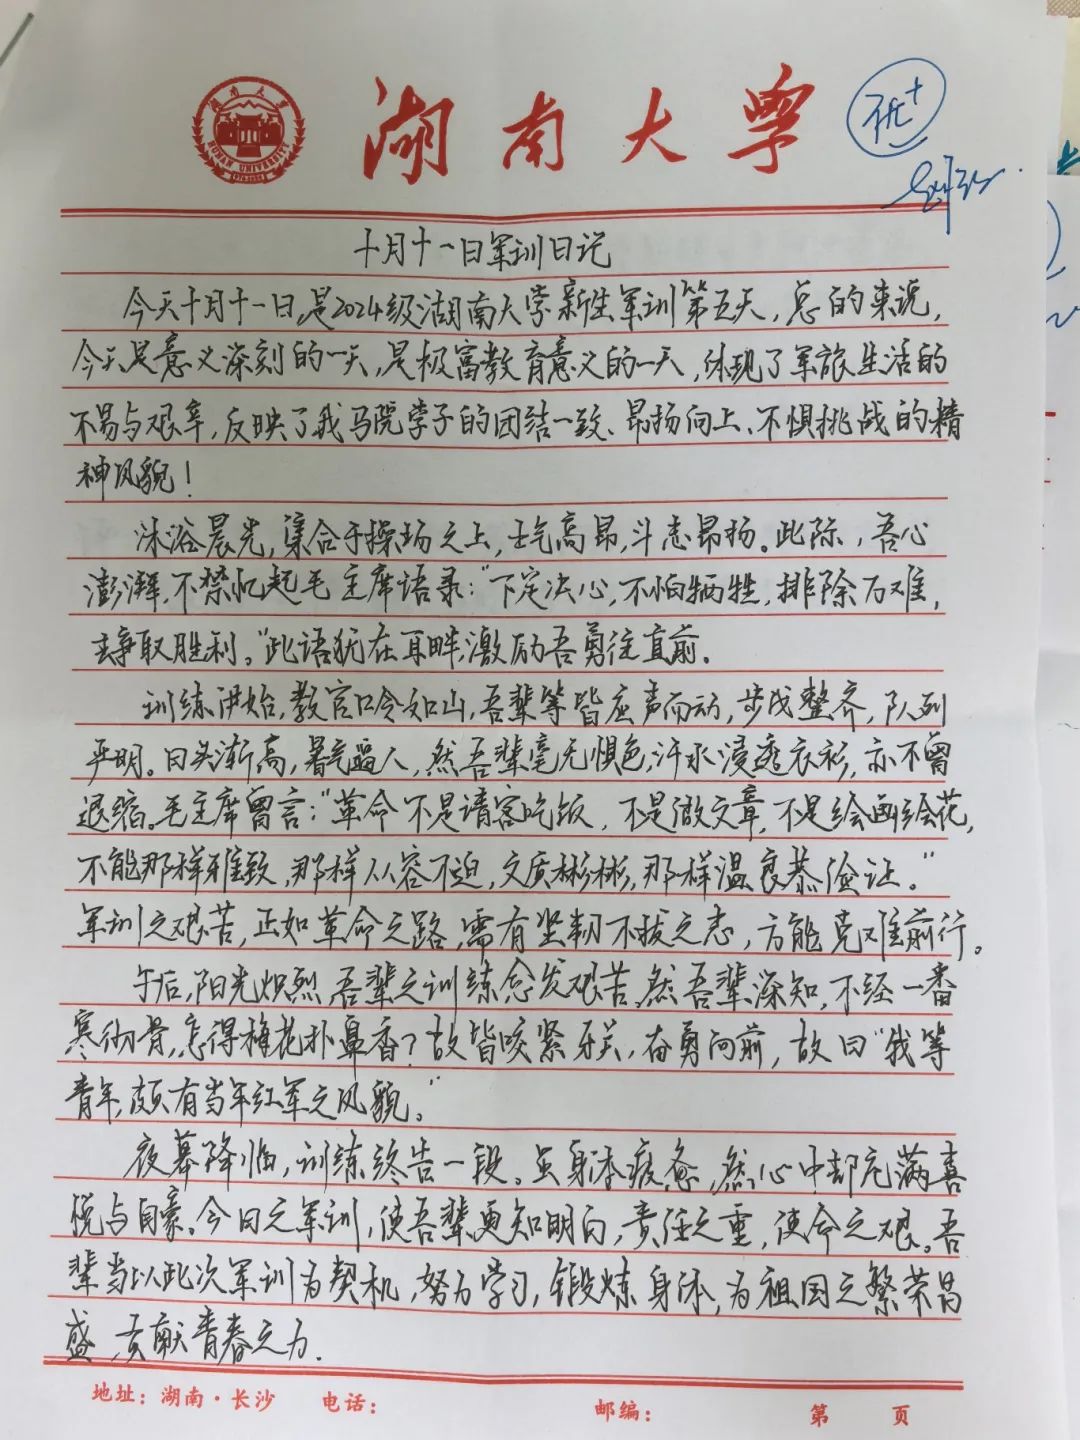 湖南大学
湖南大学
HUNAN UNIVERSITY
优+
十月十一日军训日记
今天十月十一日,是2024级湖南大学新生军训第五天,总的来说,
今天是意义深刻的一天,是极富教育意义的一天,体现了军旅生活的
不易与艰辛,反映了我马院学子的团结一致、昂扬向上、不惧挑战的精
神风貌!
沐浴晨光,集合于操场之上,士气高昂,斗志昂扬。此际,吾心
澎湃,不禁忆起毛主席语录:“下定决心,不怕牺牲,排除万难,
去争取胜利。”此语犹在耳畔,激励吾勇往直前。
训练开始,教官口令如山,吾辈等皆应声而动,步伐整齐,队列
严明。日头渐高,暑气逼人,然吾辈毫无惧色,汗水浸透衣衫,亦不曾
退缩。毛主席曾言:“革命不是请客吃饭,不是做文章,不是绘画绣花,
不能那样雅致,那样从容不迫,文质彬彬,那样温良恭俭让。”
军训之艰苦,正如革命之路,需有坚韧不拔之志,方能克难前行。
午后,阳光炽烈,吾辈之训练愈发艰苦,然吾辈深知,不经一番
寒彻骨,怎得梅花扑鼻香?故皆咬紧牙关,奋勇向前,故曰“我等
青年,颇有当年红军之风貌。”
夜幕降临,训练终告一段。虽身体疲惫,然心中却充满喜
悦与自豪。今日之军训,使吾辈更知明白,责任之重,使命之艰。吾
辈当以此次军训为契机,努力学习,锻炼身体,为祖国之繁荣昌
盛,贡献青春之力.
地址:湖南·长沙 电话: 邮编: 第 页